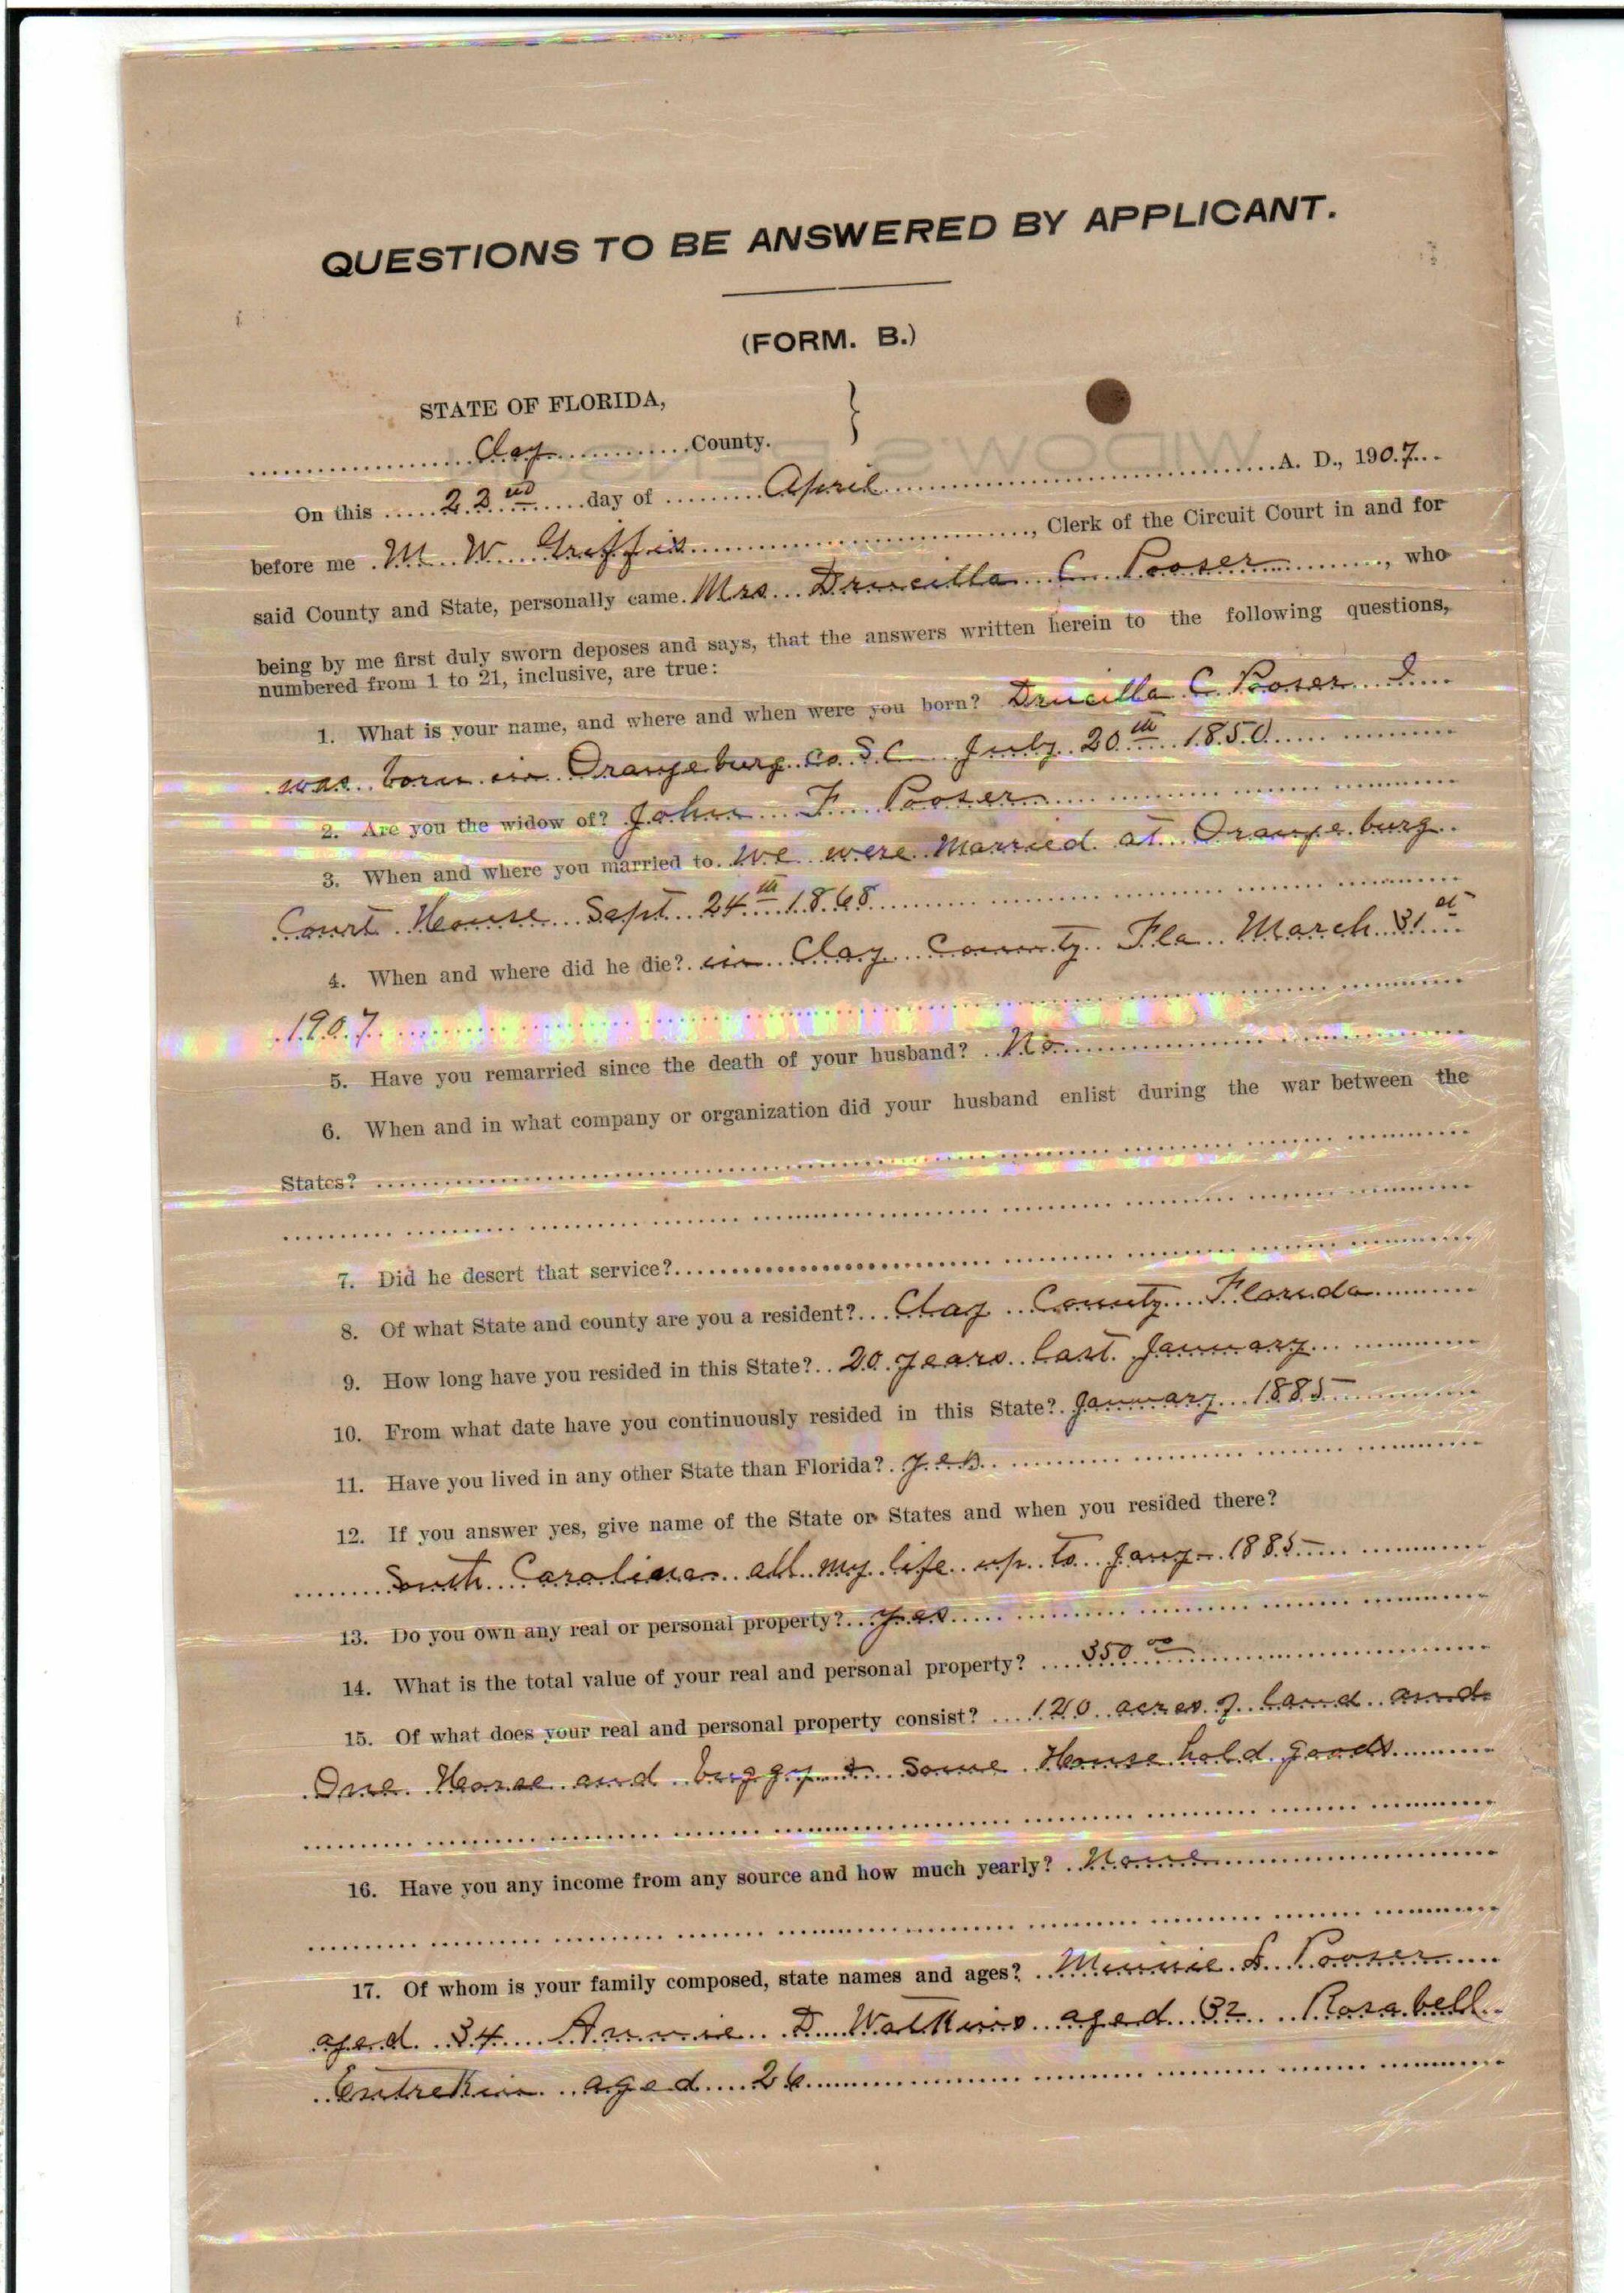 QUESTIONS TO BE ANSWERED BY APPLICANT.
(FORM. B.)
STATE OF FLORIDA,
Clay County.
On this 22nd day of April A. D., 1907
before me M W Griffis, Clerk of the Circuit Court in and for
said County and State, personally came Mrs Drucilla C Pooser, who
being by me first duly sworn deposes and says, that the answers written herein to the following questions,
numbered from 1 to 21, inclusive, are true:
1. What is your name, and where and when were you born? Drucilla C Pooser I
was born in Orangeburg co S C July 20th 1850
2. Are you the widow of? John F Pooser
3. When and where you married to we were married at Orangeburg
Court House Sept 24th 1868
4. When and where did he die? in Clay County Fla March 31st
1907
5. Have you remarried since the death of your husband? No
6. When and in what company or organization did your husband enlist during the war between the
States?
7. Did he desert that service?
8. Of what State and county are you a resident? Clay County Florida
9. How long have you resided in this State? 20 years last January
10. From what date have you continuously resided in this State? January 1885
11. Have you lived in any other State than Florida? yes
12. If you answer yes, give name of the State or States and when you resided there?
South Carolina all my life up to Jany 1885
13. Do you own any real or personal property? yes
14. What is the total value of your real and personal property? 350 00
15. Of what does your real and personal property consist? 120 acres of land and
One Horse and buggy & some House hold goods
16. Have you any income from any source and how much yearly? None
17. Of whom is your family composed, state names and ages? Minnie Pooser
aged 34 Annie D Watkins aged 32 Rosabell
Entrekin aged 26